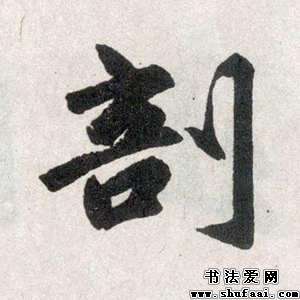 剖
书法爱网
www.shufaai.com